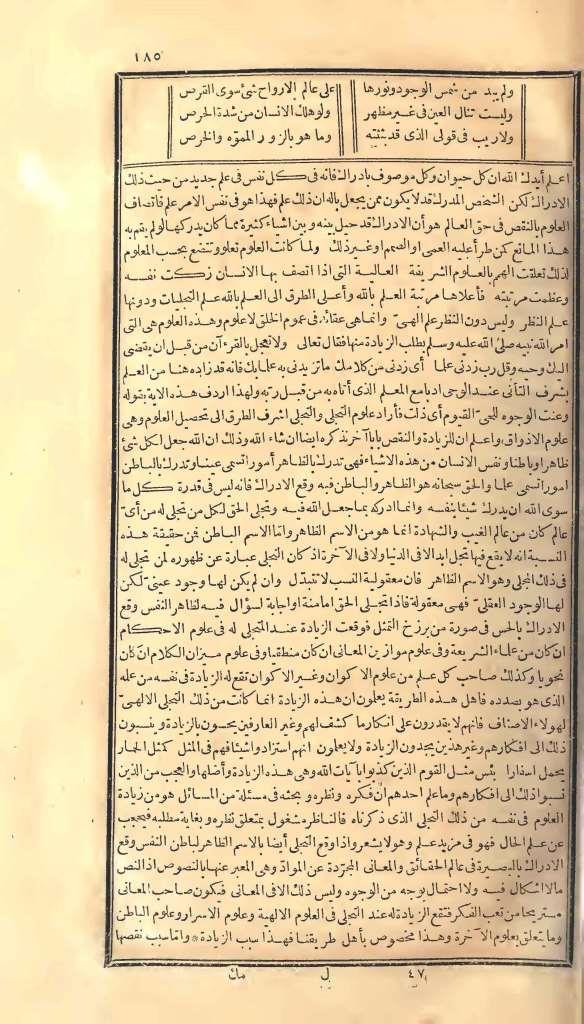 ١٨٥
ولم يبد من شمس الوجود ونورها على عالم الارواح شئ سوى القرص
وليست تنال العين فى غير مظهر ولو هلك الانسان من شدة الحرص
ولا ريب فى قولى الذى قد بثثته وما هو بالزور المموّه والخرص
اعلم أيدك الله ان كل حيوان وكل موصوف بادراك فانه فى كل نفس فى علم جديد من حيث ذلك
الادراك لكن الشخص المدرك قد لا يكون ممن يجعل باله ان ذلك علم فهذا هو فى نفس الامر علم فاتصاف
العلوم بالنقص فى حق العالم هو أن الادراك قد حيل بينه وبين اشياء كثيرة مما كان يدركها لو لم يقم به
هذا المانع كمن طرأ عليه العمى او الصمم او غير ذلك ولما كانت العلوم تعلو وتتضع بحسب المعلوم
لذلك تعلقت الهمم بالعلوم الشريفة العالية التى اذا اتصف بها الانسان زكت نفسه
وعظمت مرتبته فأعلاها مرتبة العلم بالله وأعلى الطرق الى العلم بالله علم التجليات ودونها
علم النظر وليس دون النظر علم الهىّ وانما هى عقائد فى عموم الخلق لا علوم وهذه العلوم هى التى
امر الله نبيه صلى الله عليه وسلم بطلب الزيادة منها فقال تعالى ولا تعجل بالقرءآن من قبل ان يقضى
اليك وحيه وقل رب زدنى علما أى زدنى من كلامك ما تزيدنى به علما بك فانه قد زاده هنا من العلم
بشرف التأنى عند الوحى ادبا مع المعلم الذى أتاه به من قبل ربه ولهذا اردف هذه الاية بقوله
وعنت الوجوه للحىّ القيوم أى ذلت فأراد علوم التجلى والتجلى اشرف الطرق الى تحصيل العلوم وهى
علوم الاذواق واعلم ان للزيادة والنقص بابا آخر نذكره ايضا ان شاء الله وذلك ان الله جعل لكل شئ
ظاهرا وباطنا ونفس الانسان من هذه الاشياء فهى تدرك بالظاهر أمورا تسمى عينا وتدرك بالباطن
امورا تسمى علما والحق سبحانه هو الظاهر والباطن فبه وقع الادراك فانه ليس فى قدرة كل ما
سوى الله ان يدرك شيئا بنفسه وانما ادركه بما جعل الله فيه وتجلى الحق لكل من تجلى له من أىّ
عالم كان من عالم الغيب والشهادة انما هو من الاسم الظاهر واما الاسم الباطن فمن حقيقة هذه
النسبة انه لا يقع فيها تجل ابدا لا فى الدنيا ولا فى الآخرة اذ كان التجلى عبارة عن ظهوره لمن تجلى له
فى ذلك المجلى وهو الاسم الظاهر فان معقولية النسب لا تتبدّل وان لم يكن لها وجود عينىّ لكن
لها الوجود العقلىّ فهى معقولة فاذا تجلى الحق اما منة او اجابة لسؤال فيه لظاهر النفس وقع
الادراك بالحس فى صورة من برزخ التمثل فوقعت الزيادة عند المتجلى له فى علوم الاحكام
ان كان من علماء الشريعة وفى علوم موازين المعانى ان كان منطقيا وفى علوم ميزان الكلام ان كان
نحويا وكذلك صاحب كل علم من علوم الاكوان وغير الاكوان تقع له الزيادة فى نفسه من علمه
الذى هو بصدده فاهل هذه الطريقة يعلمون ان هذه الزيادة انما كانت من ذلك التجلى الالهىّ
لهولاء الاصناف فانهم لا يقدرون على انكار ما كشف لهم وغير العارفين يحسون بالزيادة وينسبون
ذلك الى افكارهم وغير هذين يجدون الزيادة ولا يعلمون انهم استزادوا شيئا فهم فى المثل كمثل الحمار
يحمل اسفارا بئس مثل القوم الذين كذبوا بآيات الله وهى هذه الزيادة وأصلها والعجب من الذين
نسبوا ذلك الى افكارهم وما علم احدهم انّ فكره ونظره وبحثه فى مسئلة من المسائل هو من زيادة
العلوم فى نفسه من ذلك التجلى الذى ذكرناه فالناظر مشغول بمتعلق نظره وبغاية مطلبه فيحجب
عن علم الحال فهو فى مزيد علم وهو لا يشعر واذا وقع التجلى أيضا بالاسم الظاهر لباطن النفس وقع
الادراك بالبصيرة فى عالم الحقائق والمعانى المجرّدة عن الموادّ وهى المعبر عنها بالنصوص اذ النص
ما لا اشكال فيه ولا احتمال بوجه من الوجوه وليس ذلك الا فى المعانى فيكون صاحب المعانى
مستريحا من تعب الفكر فتقع الزيادة له عند التجلى فى العلوم الالهية وعلوم الاسرار وعلوم الباطن
وما يتعلق بعلوم الآخرة وهذا مخصوص بأهل طريقنا فهذا سبب الزيادة * واما سبب نقصها
٤٧ ل مك